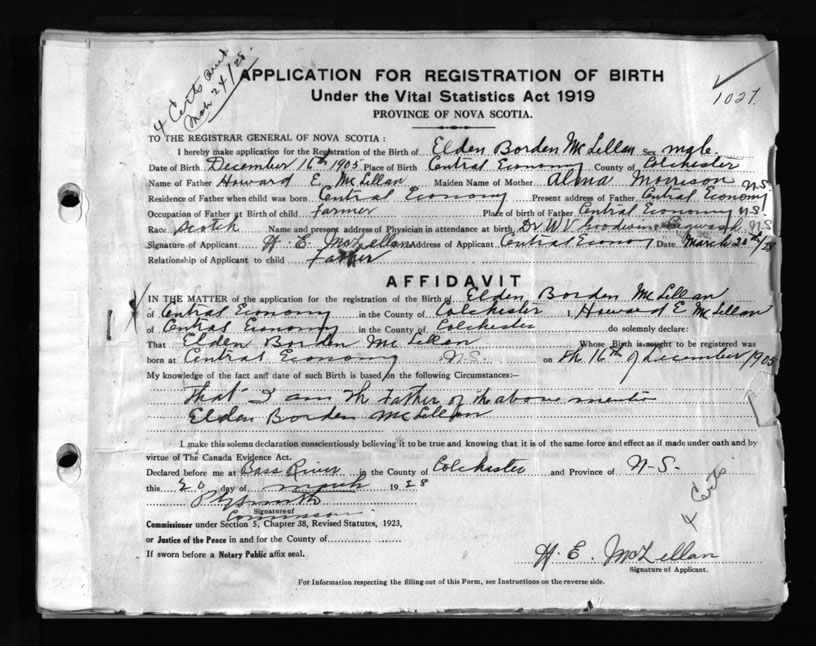 4 Certs sent
Mch 24/28.
1027.
APPLICATION FOR REGISTRATION OF BIRTH
Under the Vital Statistics Act 1919
PROVINCE OF NOVA SCOTIA.
TO THE REGISTRAR GENERAL OF NOVA SCOTIA:
I hereby make application for the Registration of the Birth of Elden Borden McLellan Sex male
Date of Birth December 16th 1905 Place of Birth Central Economy County of Colchester
Name of Father Howard E. McLellan Maiden Name of Mother Alma Morrison
Residence of Father when child was born Central Economy Present address of Father Central Economy N.S.
Occupation of Father at Birth of child farmer Place of birth of Father Central Economy N.S.
Race Scotch Name and present address of Physician in attendance at birth Dr W V Goodwin N.S
Signature of Applicant H. E. McLellan Address of Applicant Central Economy Date March 20th/28
Relationship of Applicant to child Father
AFFIDAVIT
IN THE MATTER of the application for the registration of the Birth of Elden Borden McLellan
of Central Economy in the County of Colchester I, Howard E McLellan
of Central Economy in the County of Colchester do solemnly declare:
That Elden Borden McLellan Whose Birth is sought to be registered was
born at Central Economy N.S. on th 16th of December 1905
My knowledge of the fact and date of such Birth is based on the following Circumstances:—
That I am th Father of th above mentio
Elden Borden McLellan
I make this solemn declaration conscientiously believing it to be true and knowing that it is of the same force and effect as if made under oath and by
virtue of The Canada Evidence Act.
Declared before me at Bass River in the County of Colchester and Province of N-S-
this 20 day of March 1928
Signature of
Commissioner under Section 5, Chapter 38, Revised Statutes, 1923,
or Justice of the Peace in and for the County of
If sworn before a Notary Public affix seal.
4 Certs.
H. E. McLellan
Signature of Applicant.
For Information respecting the filling out of this Form, see Instructions on the reverse side.